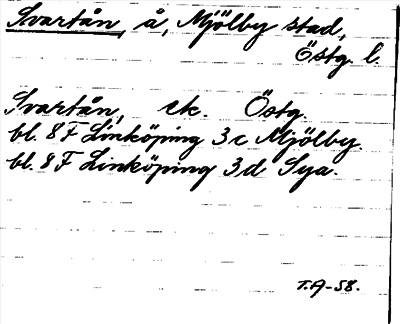 Svartån, å, Mjölby stad,
Östg. l.
Svartån, ek. Östg.
bl. 8 F Linköping 3 c Mjölby.
bl. 8 F Linköping 3 d Sya.
T.A-58.